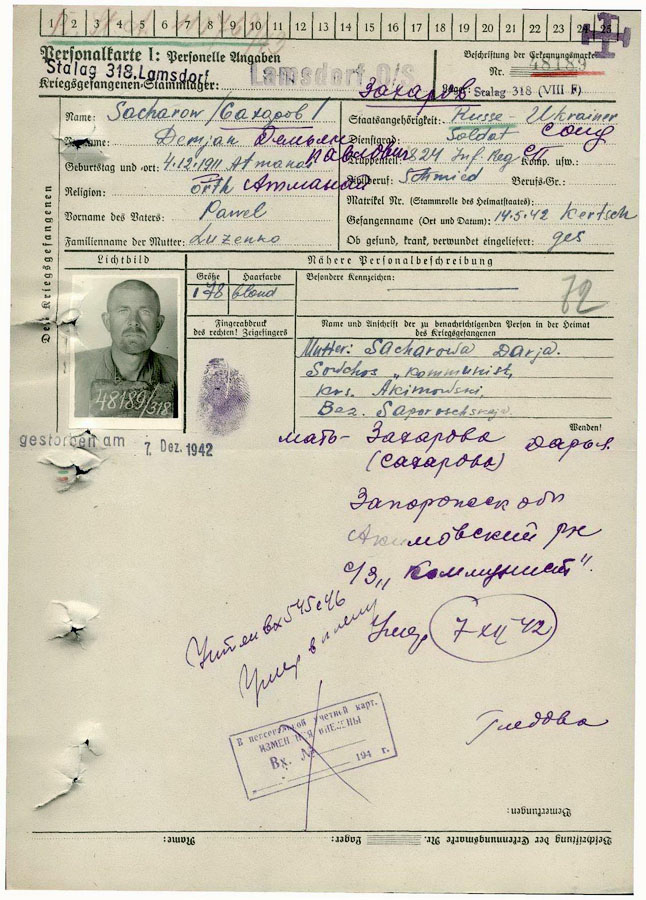 1 2 3 4 5 6 7 8 9 10 11 12 13 14 15 16 17 18 19 20 21 22 23 24 25
Personalkarte I: Personelle Angaben
Beschriftung der Erkennungsmarke
Stalag 318. Lamsdorf
Lamsdorf O/S
Nr. 48189
Kriegsgefangenen-Stammlager:
Захаров
Lager: Stalag 318 (VIII F)
Des Kriegsgefangenen
Name: Sacharow /Сахаров/
Staatsangehörigkeit: Russe Ukrainer
Vorname: Demjan Демьян
Dienstgrad: Soldat солд
Павлович
Geburtstag und -ort: 4.12.1911 Atmanai
Truppenteil: 824 Inf. Reg. СП Komp. usw.:
Religion: orth Атманай
Zivilberuf: Schmied Berufs-Gr.:
Matrikel Nr. (Stammrolle des Heimatstaates):
Vorname des Vaters: Pawel
Gefangennahme (Ort und Datum): 14.5.42 Kertsch
Familienname der Mutter: Luzenko
Ob gesund, krank, verwundet eingeliefert: ges
Lichtbild
Nähere Personalbeschreibung
Größe Haarfarbe
178 blond
Besondere Kennzeichen:
72
Fingerabdruck
des rechten! Zeigefingers
Name und Anschrift der zu benachrichtigenden Person in der Heimat
des Kriegsgefangenen
Mutter: Sacharowa Darja.
Sowchos „Kommunist,
Krs. Akimowski,
Bez. Saporoschskaja.
48189/318
Wenden!
gestorben am 7. Dez. 1942
мать- Захарова Дарья.
(Сахарова)
Запорожск обл
Акимовский рн
с/з „Коммунист".
Умер 7 XII 42
Умер в плену
Гледова
В персональной учетной карт.
ИЗМЕНЕНИЯ ВНЕСЕНЫ
Вх. №
194 г.
Bemerkungen:
Name:
Beschriftung der Erkennungsmarke Nr. Lager: